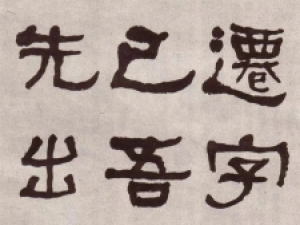 遷字
己吾
先出